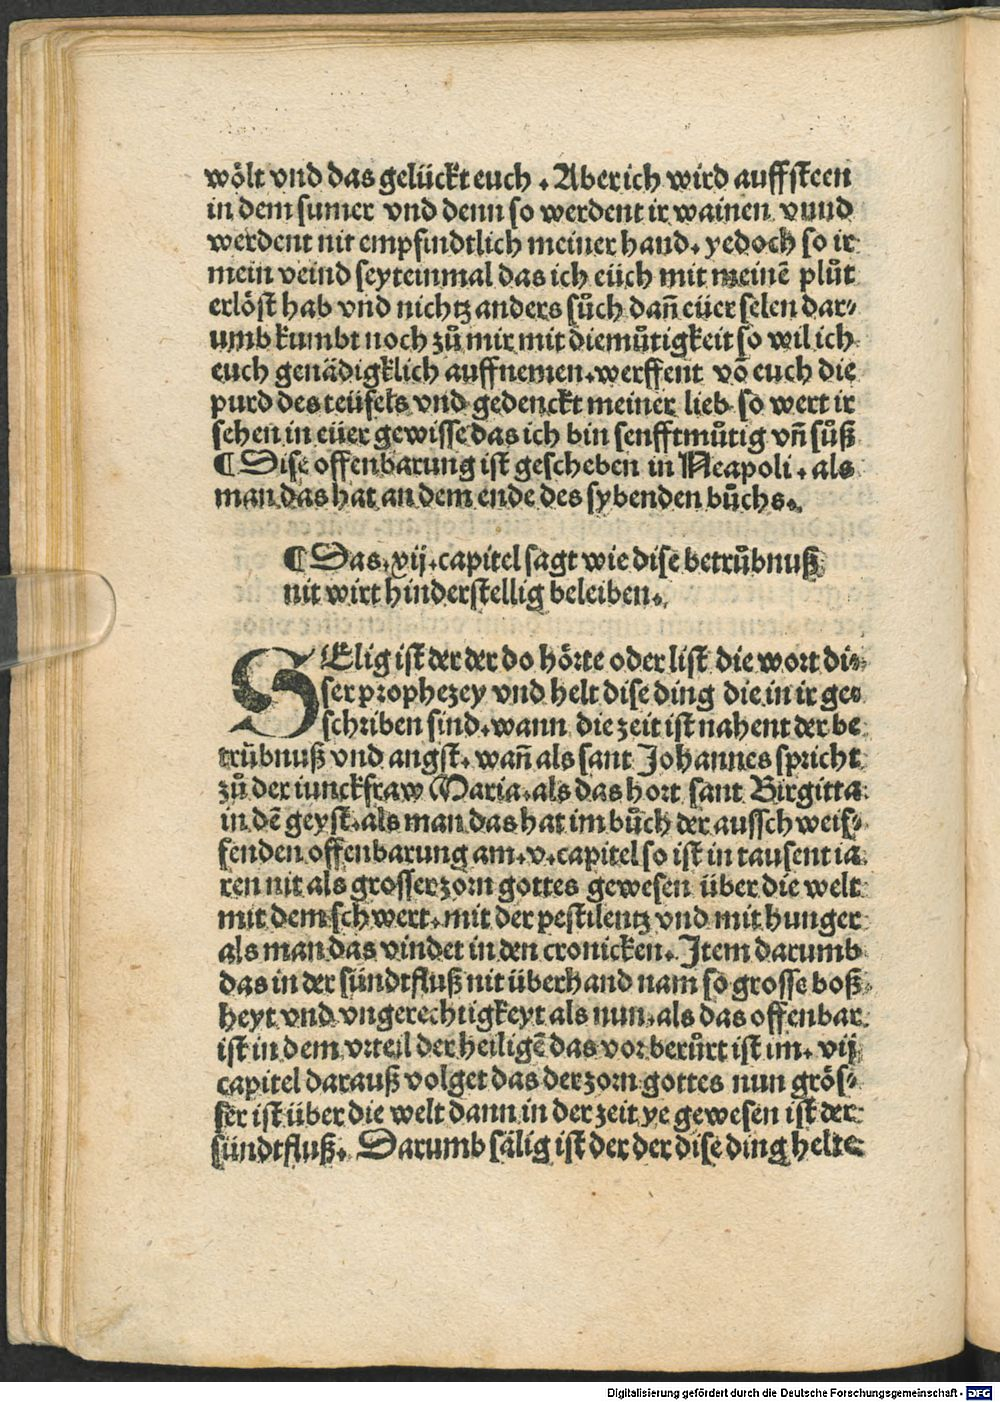 wölt vnd das gelückt euch . Aber ich wird auffsteen
in dem sumer vnd denn so werdent ir wainen vnnd
werdent nit empfindtlich meiner hand. yedoch so ir
mein veind seyt einmal das ich eüch mit meinē plůt
erlöst hab vnd nichtz anders sůch dañ eüer selen dar⸗
umb kumbt noch zů mir mit diemůtigkeit so wil ich
euch genädigklich auffnemen. werffent vō euch die
purd des teüfels vnd gedenckt meiner lieb so wert ir
sehen in eüer gewisse das ich bin senfftmůtig vñ sůß
¶ Dise offenbarung ist gescheben in Neapoli . als
man das hat an dem ende des sybenden bůchs.
¶ Das .xij. capitel sagt wie dise betrůbnuß
nit wirt hinderstellig beleiben.
SElig ist der der do hörte oder list die wort di⸗
ser prophezey vnd helt dise ding die in ir ge⸗
schriben sind. wann die zeit ist nahent der be
trůbnuß vnd angst. wañ als sant Johannes spricht
zů der iunckfraw Maria. als das hort sant Birgitta
in dē geyst. als man das hat im bůch der ausschweif⸗
fenden offenbarung am .v. capitel so ist in tausent ia
ren nit als grosser zorn gottes gewesen über die welt
mit dem schwert. mit der pestilentz vnd mit hunger
als man das vindet in den cronicken. Item darumb
das in der sündtfluß nit überhand nam so grosse boß⸗
heyt vnd vngerechtigkeyt als nun. als das offenbar
ist in dem vrteil der heiligē das vor berůrt ist im .vij
capitel darauß volget das der zorn gottes nun grös⸗
ser ist über die welt dann in der zeit ye gewesen ist der
sündtfluß. Darumb sälig ist der der dise ding helte
Digitalisierung gefördert durch die Deutsche Forschungsgemeinschaft - DFG